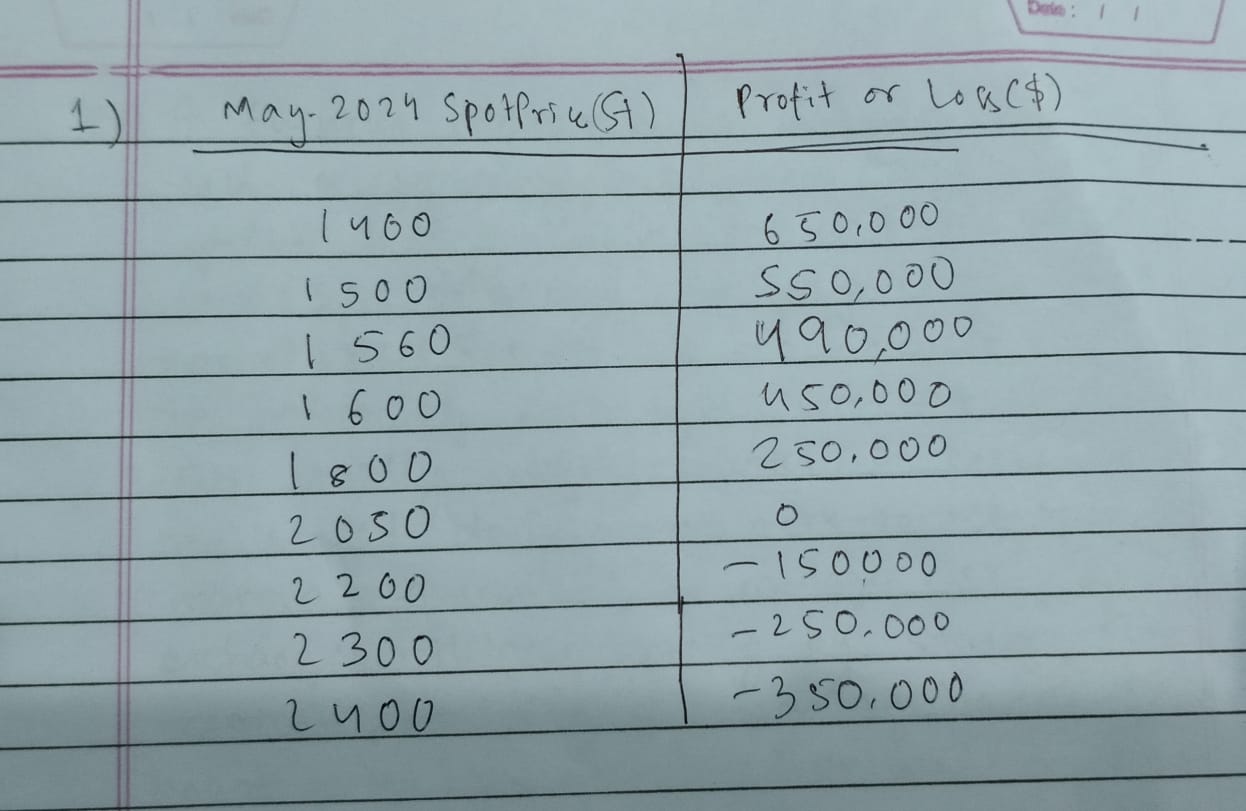 Date : / /
1) May-2024 Spot Price (St) Profit or Loss ($)
1400 650,000
1500 550,000
1560 490,000
1600 450,000
1800 250,000
2050 0
2200 -150000
2300 -250,000
2400 -350,000